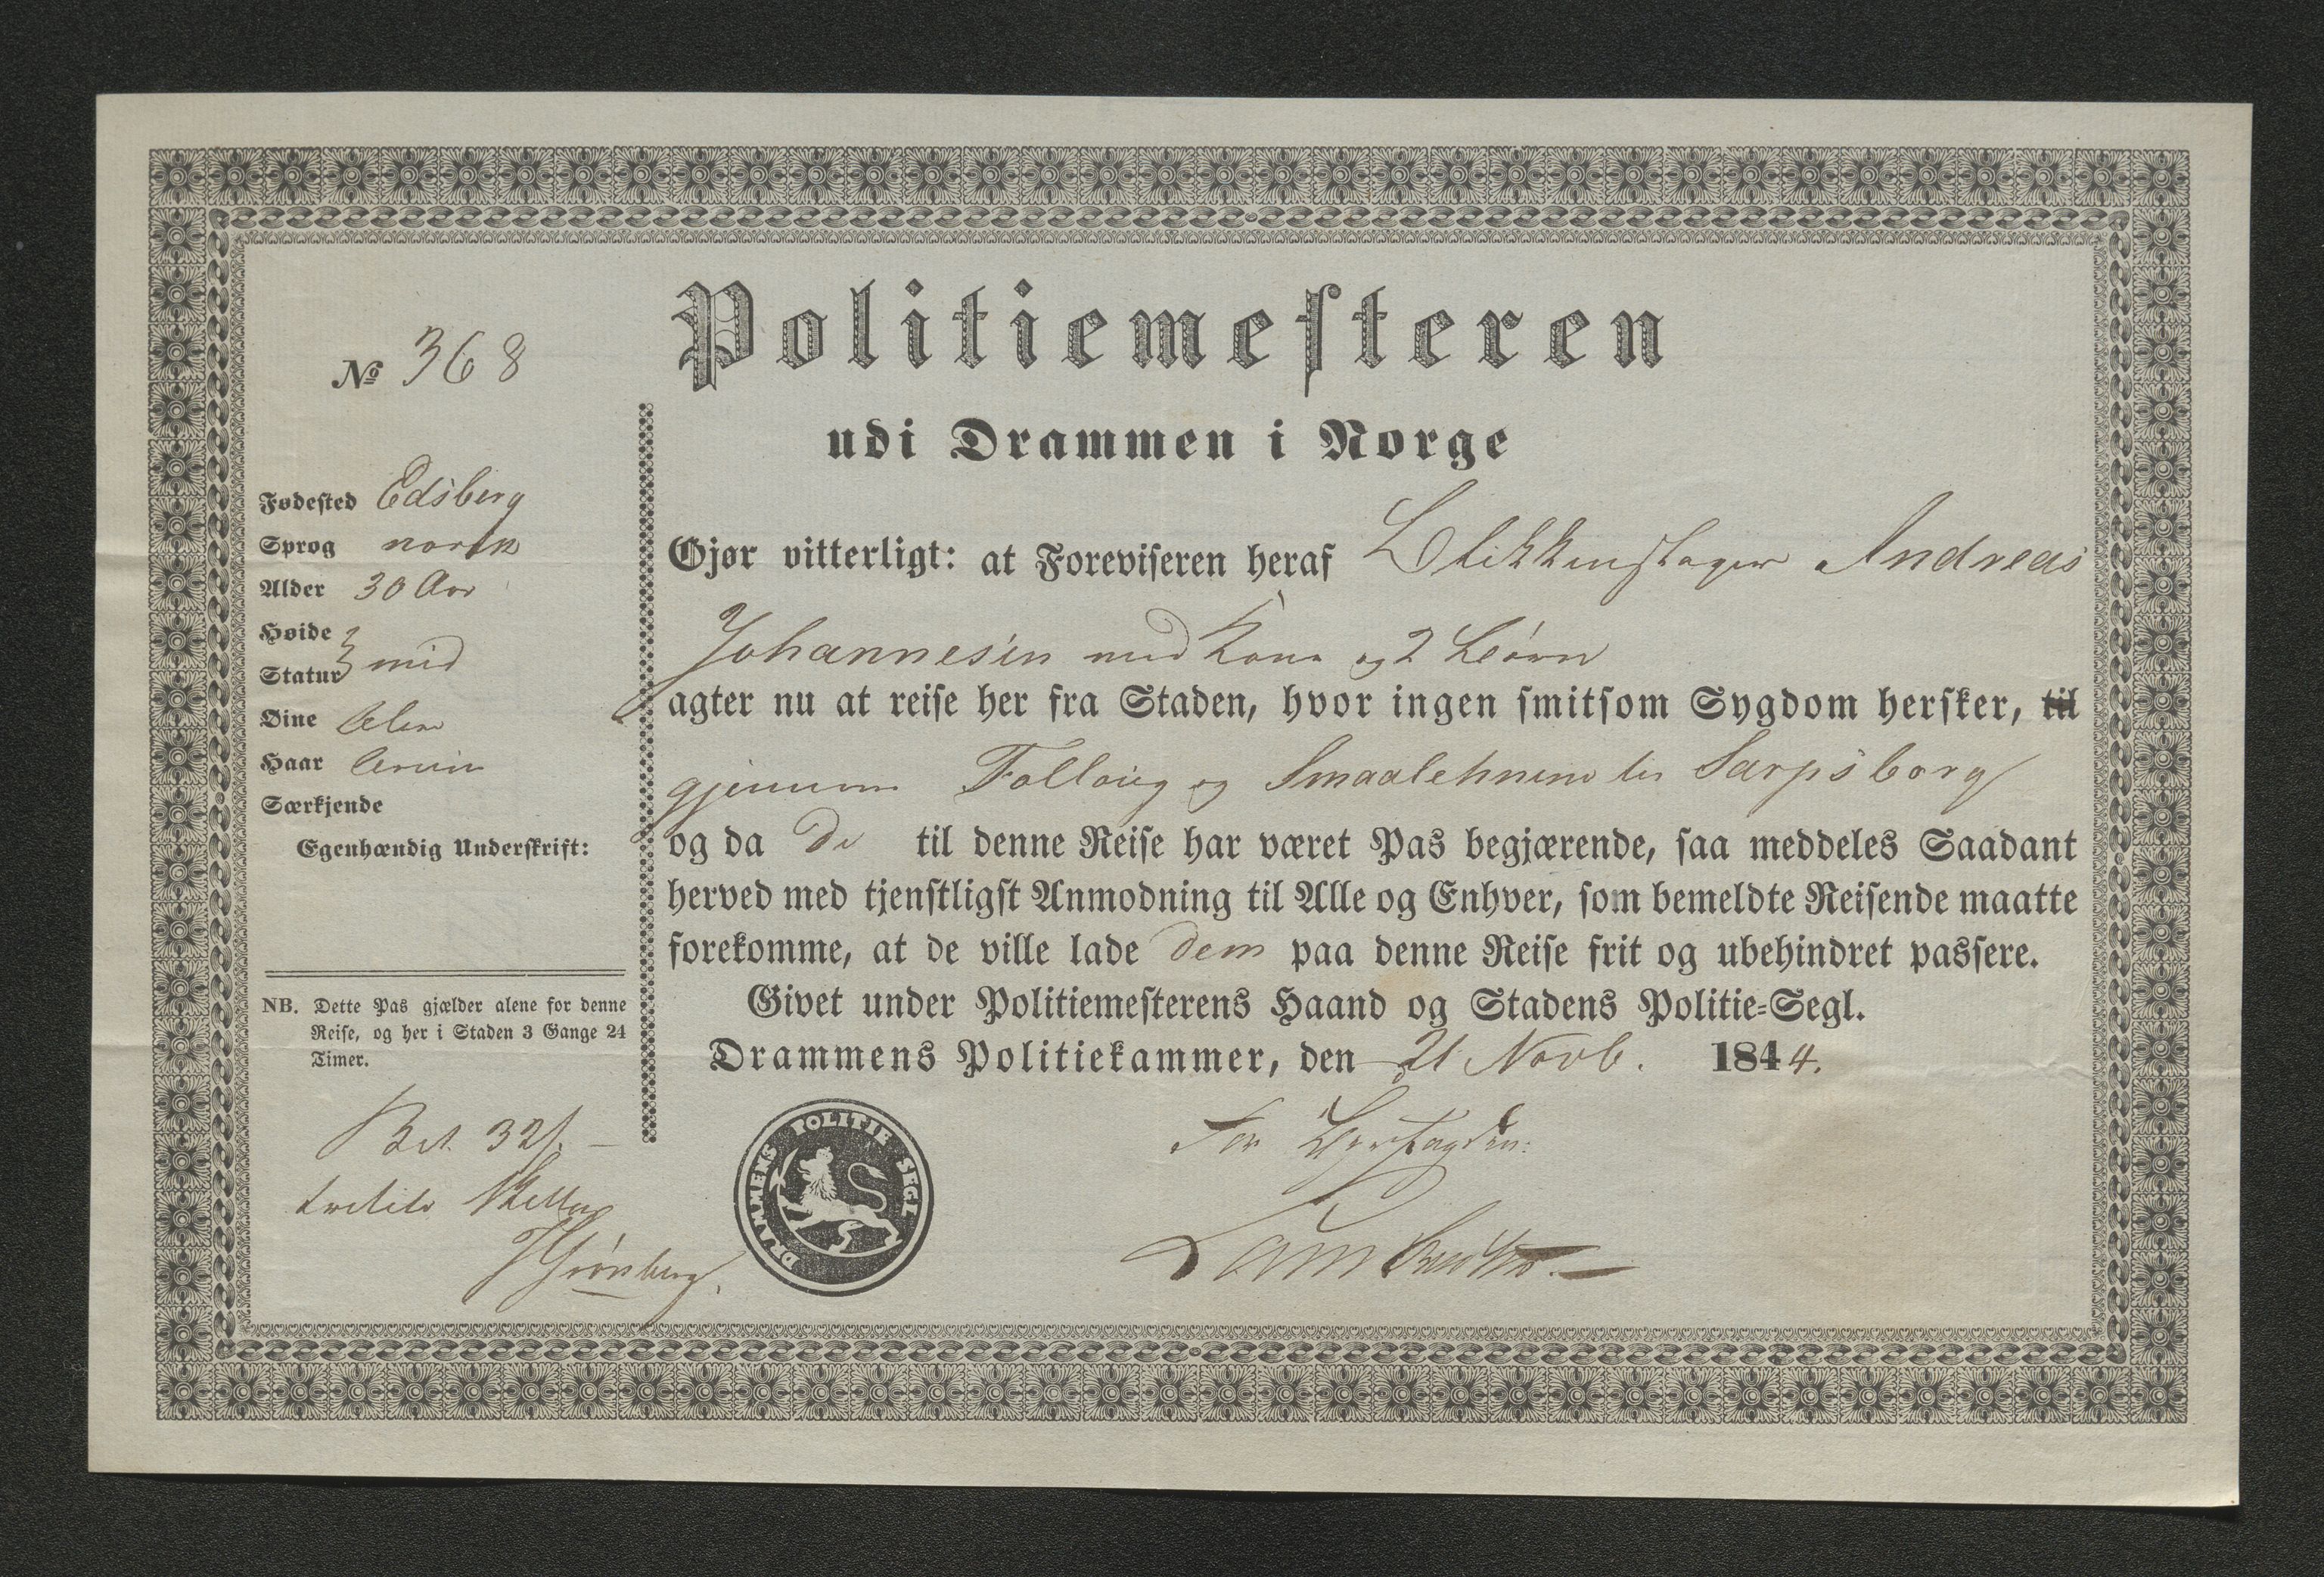 Politiemesteren
udi Drammen i Norge
No 368
Fødested Edsberg
Sprog norsk
Alder 30 Aar
Høide
Statur } mid
Øine blaa
Haar bruin
Særkjende
Egenhændig Underskrift:
NB. Dette Pas gjælder alene for denne
Reise, og her i Staden 3 Gange 24
Timer.
Bet. 32 ſ. —
tretito Skill
HGrønberg.
Gjør vitterligt: at Foreviseren heraf Blikkenslager Andreas
Johannesen med Kone og 2 Børn
agter nu at reise her fra Staden, hvor ingen smitsom Sygdom hersker, til
gjennem Folloug og Smaalehnene til Sarpsborg
og da de til denne Reise har været Pas begjærende, saa meddeles Saadant
herved med tjenstligst Anmodning til Alle og Enhver, som bemeldte Reisende maatte
forekomme, at de ville lade dem paa denne Reise frit og ubehindret passere.
Givet under Politiemesterens Haand og Stadens Politie-Segl.
Drammens Politiekammer, den 21 Novb. 1844.
DRAMMENS POLITIE SEGL
For